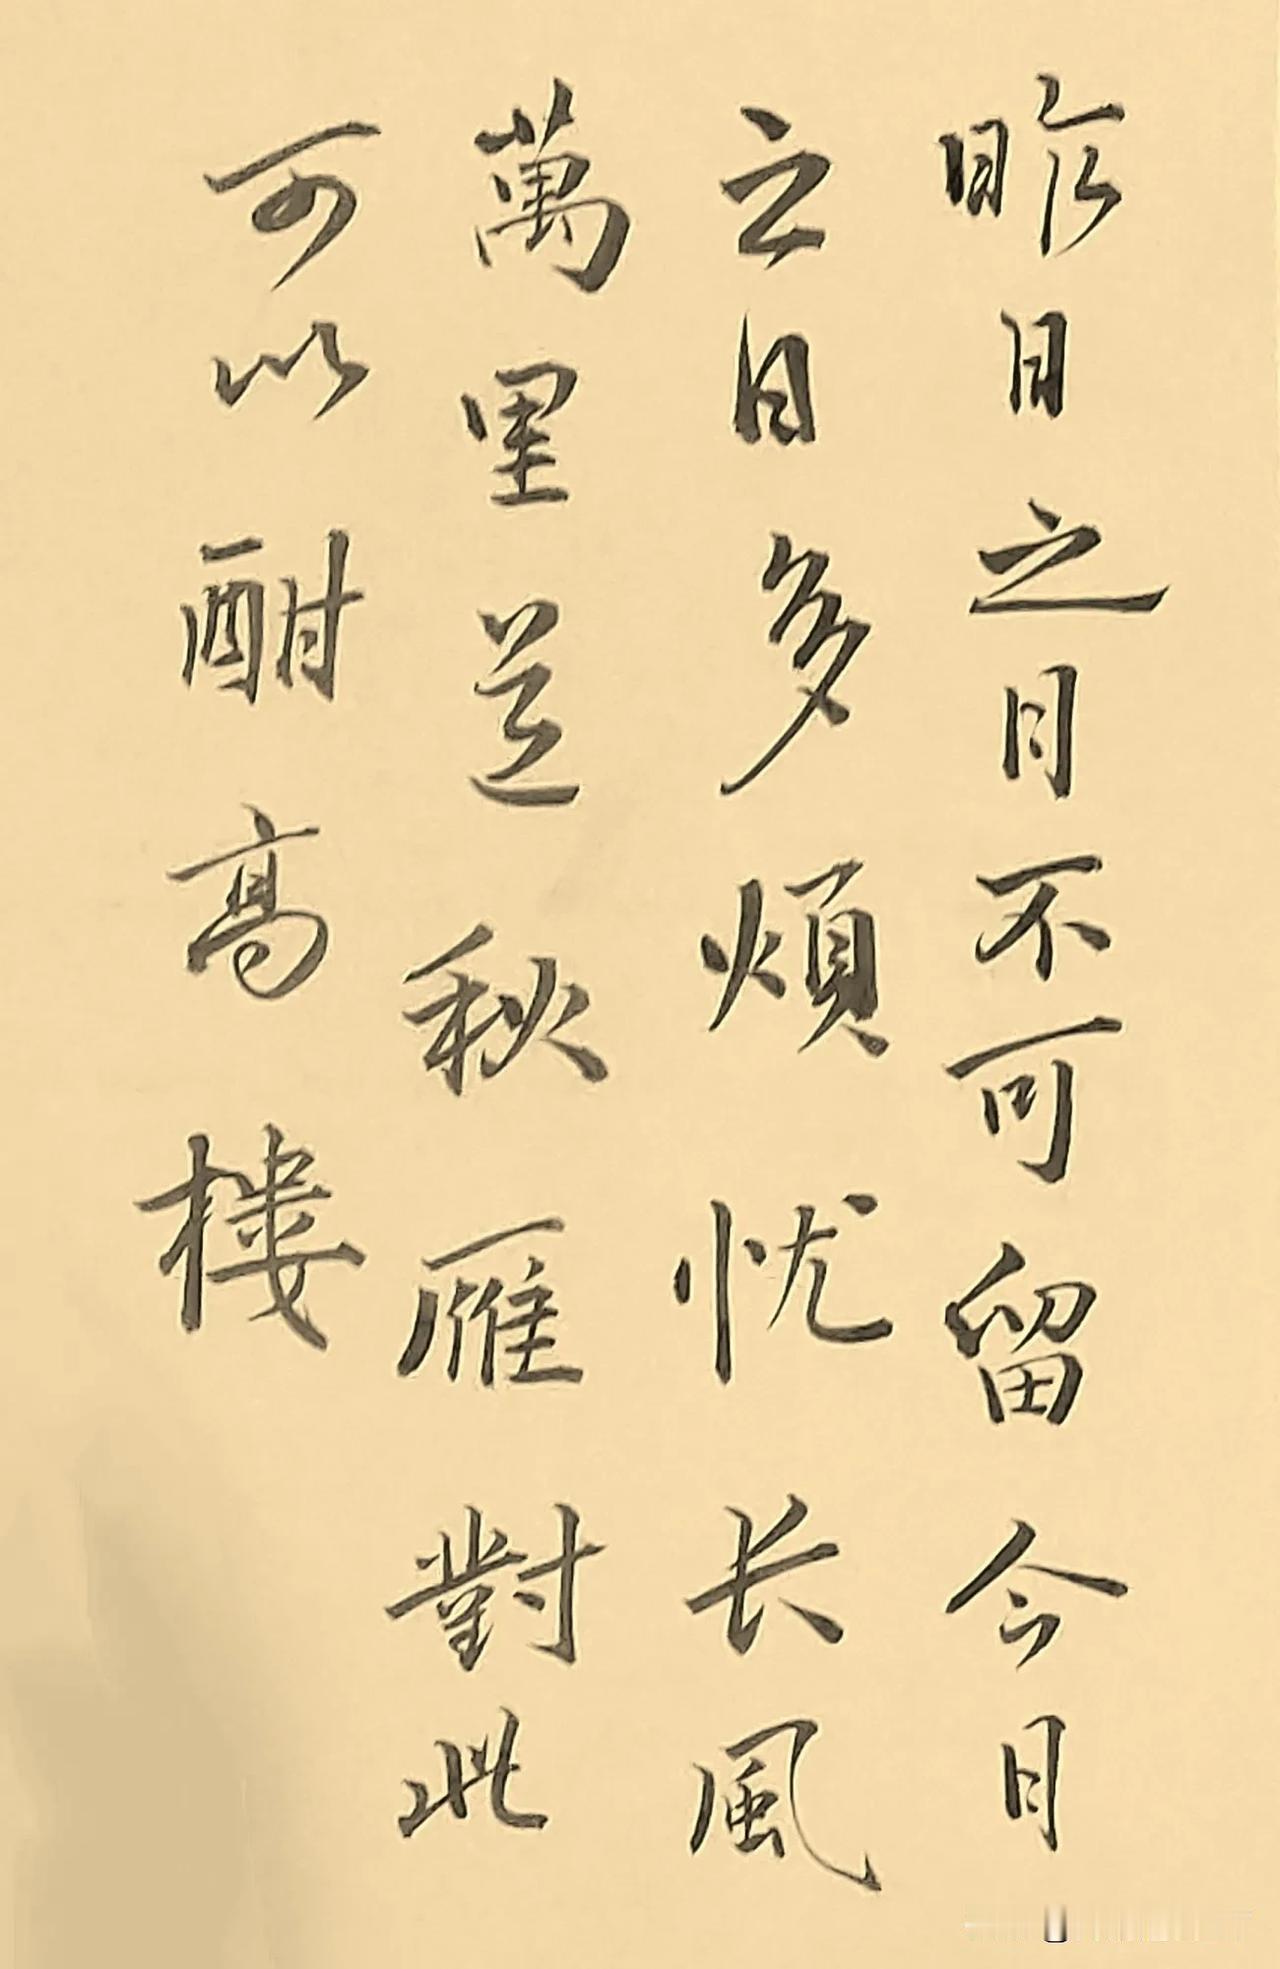 昨日之日不可留今日
之日多煩忧长風
萬里送秋雁對此
可以酣高樓